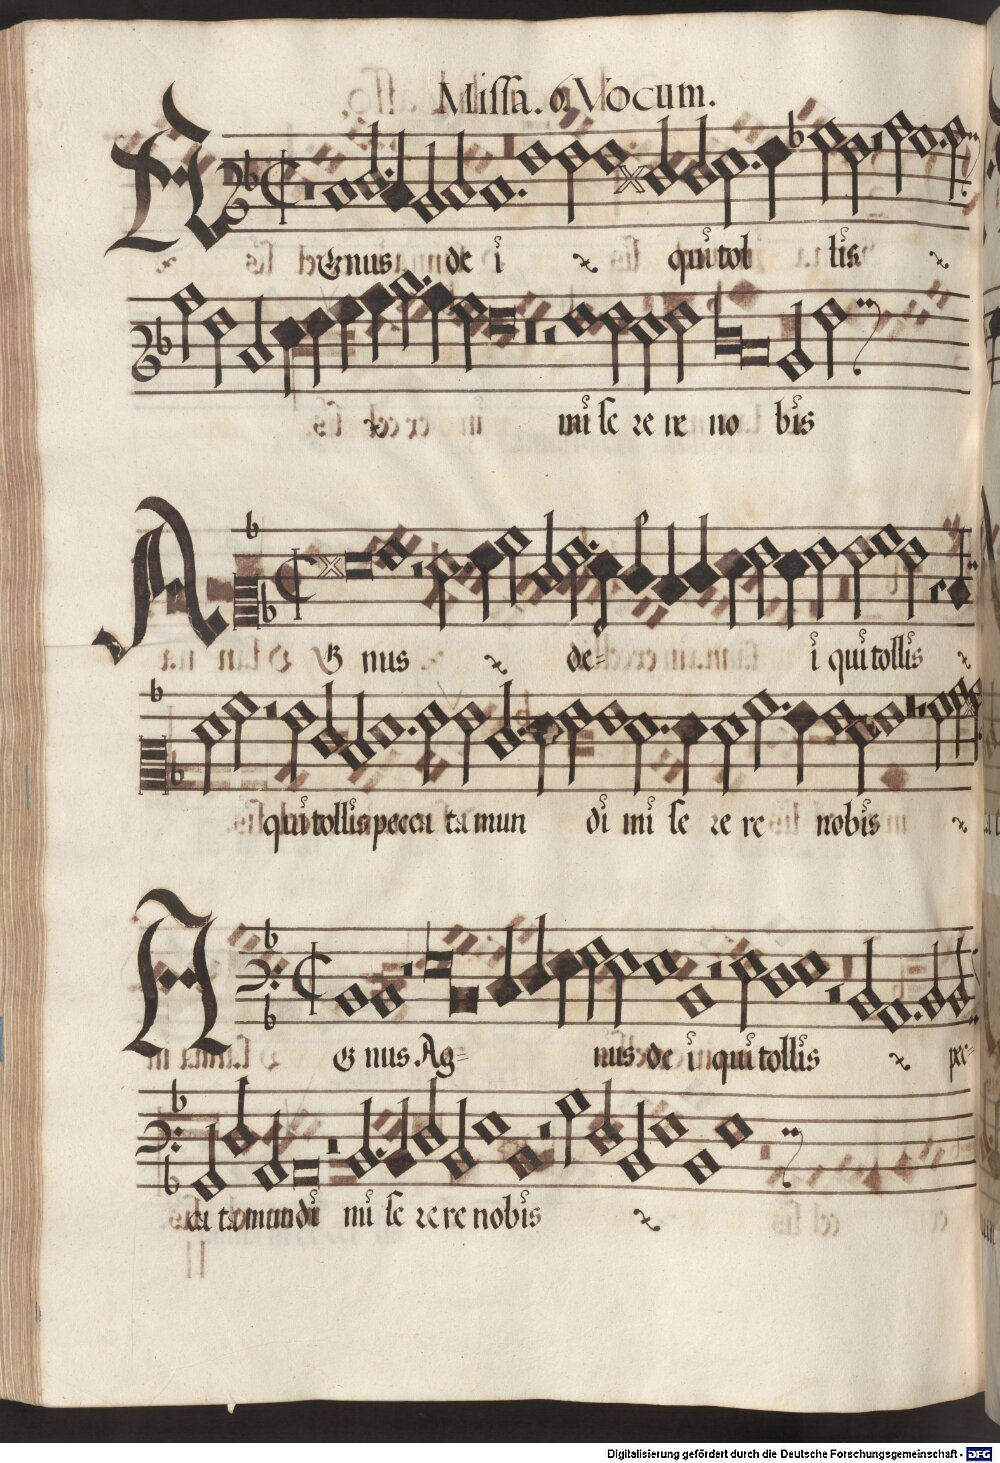 Missa. 6. Vocum.
Agnus de i qui tol lis
mi se re re no bis
AG nus de= i qui tollis
qui tollis pecca ta mun di mi se re re nobis
AG nus Ag= nus de i qui tollis pec=
ca ta mundi mi se re re nobis
Digitalisierung gefördert durch die Deutsche Forschungsgemeinschaft - DFG